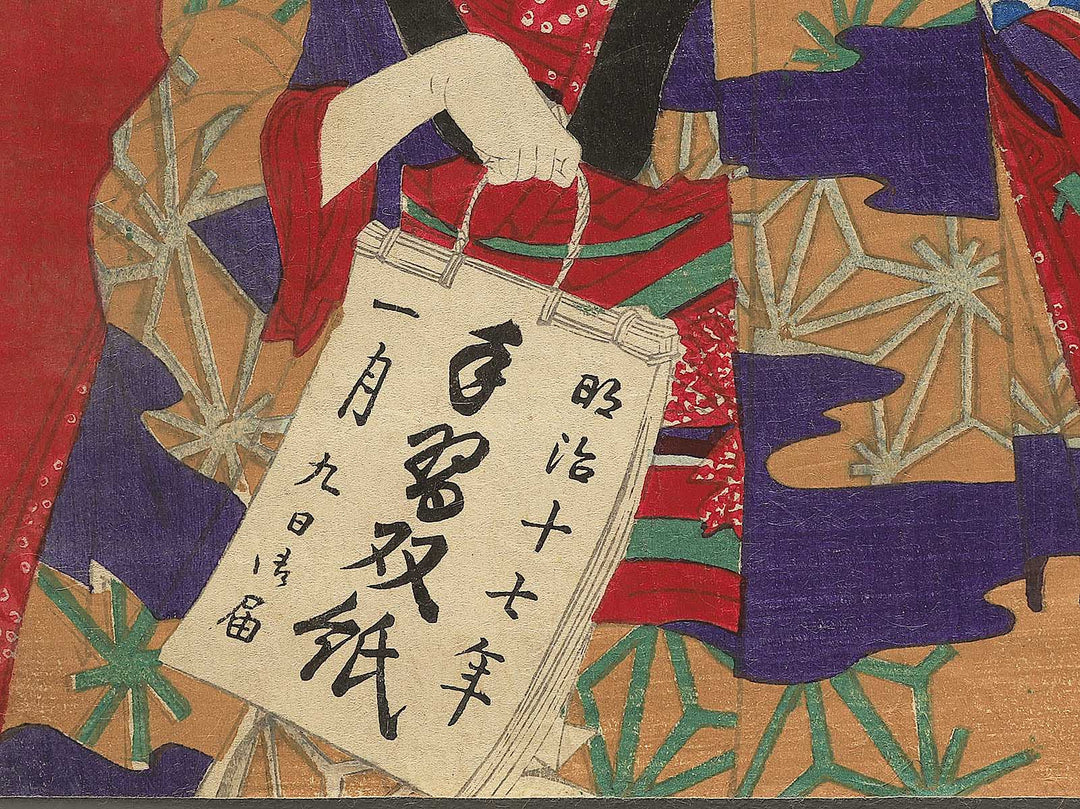 明治十七年
手習双紙
一月九日御届